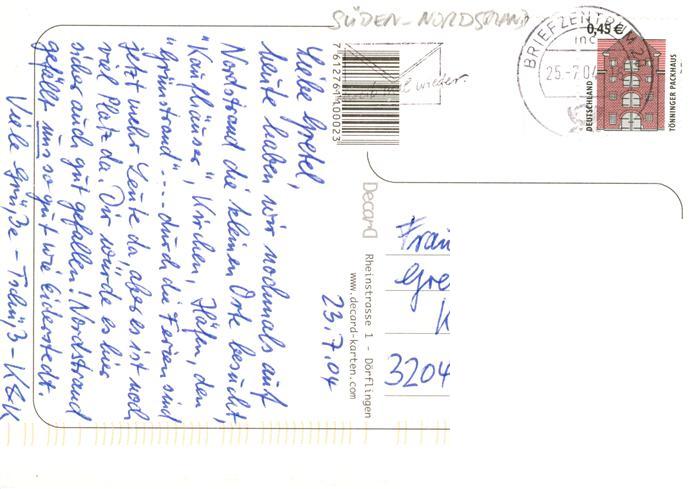 SÜDEN-NORDSTRAND
mal wieder.
7612761100023
BRIEFZENTRUM 25
25.-7.04
0,45 €
DEUTSCHLAND
TÖNNINGER PACKHAUS
Decard
Rheinstrasse 1 - Dörflingen
www.decard-karten.com
23.7.04
Liebe Gretel,
heute haben wir nochmals auf
Nordstrand die kleinen Orte besucht,
"Kaufhäuser", Kirchen, Häfen, den
"Grünstrand".... durch die Ferien sind
jetzt mehr Leute da, aber es ist noch
viel Platz da. Dir würde es hier
sicher auch gut gefallen! Nordstrand
gefällt uns so gut wie Eiderstedt.
Viele Grüße - Tschüß - K&K
Frau
Gre
K
3204